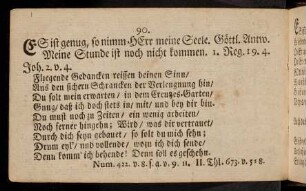 90.
ES ist genug, so nimm HErr meine Seele. Göttl. Antw.
Meine Stunde ist noch nicht kommen. 1. Reg. 19. 4.
Joh. 2. v. 4.
Fliegende Gedancken reissen deinen Sinn/
Aus den sichern Schrancken der Verleugnung hin/
Du solt mein erwarten/ in dem Creutzes-Garten/
Gnug/ daß ich doch stets in/ mit/ und bey dir bin.
Du must noch zu Zeiten/ ein wenig arbeiten/
Noch ferner hingehn; Wird/ was dir vertrauet/
Durch dich seyn gebauet/ so solt du mich sehn;
Drum eyl/ und vollende/ wozu ich dich sende/
Denn komm' ich behende! Denn soll es geschehn.
Num. 422. v. 8. f. q. v. 9. u. II. Thl. 673. v. 518.